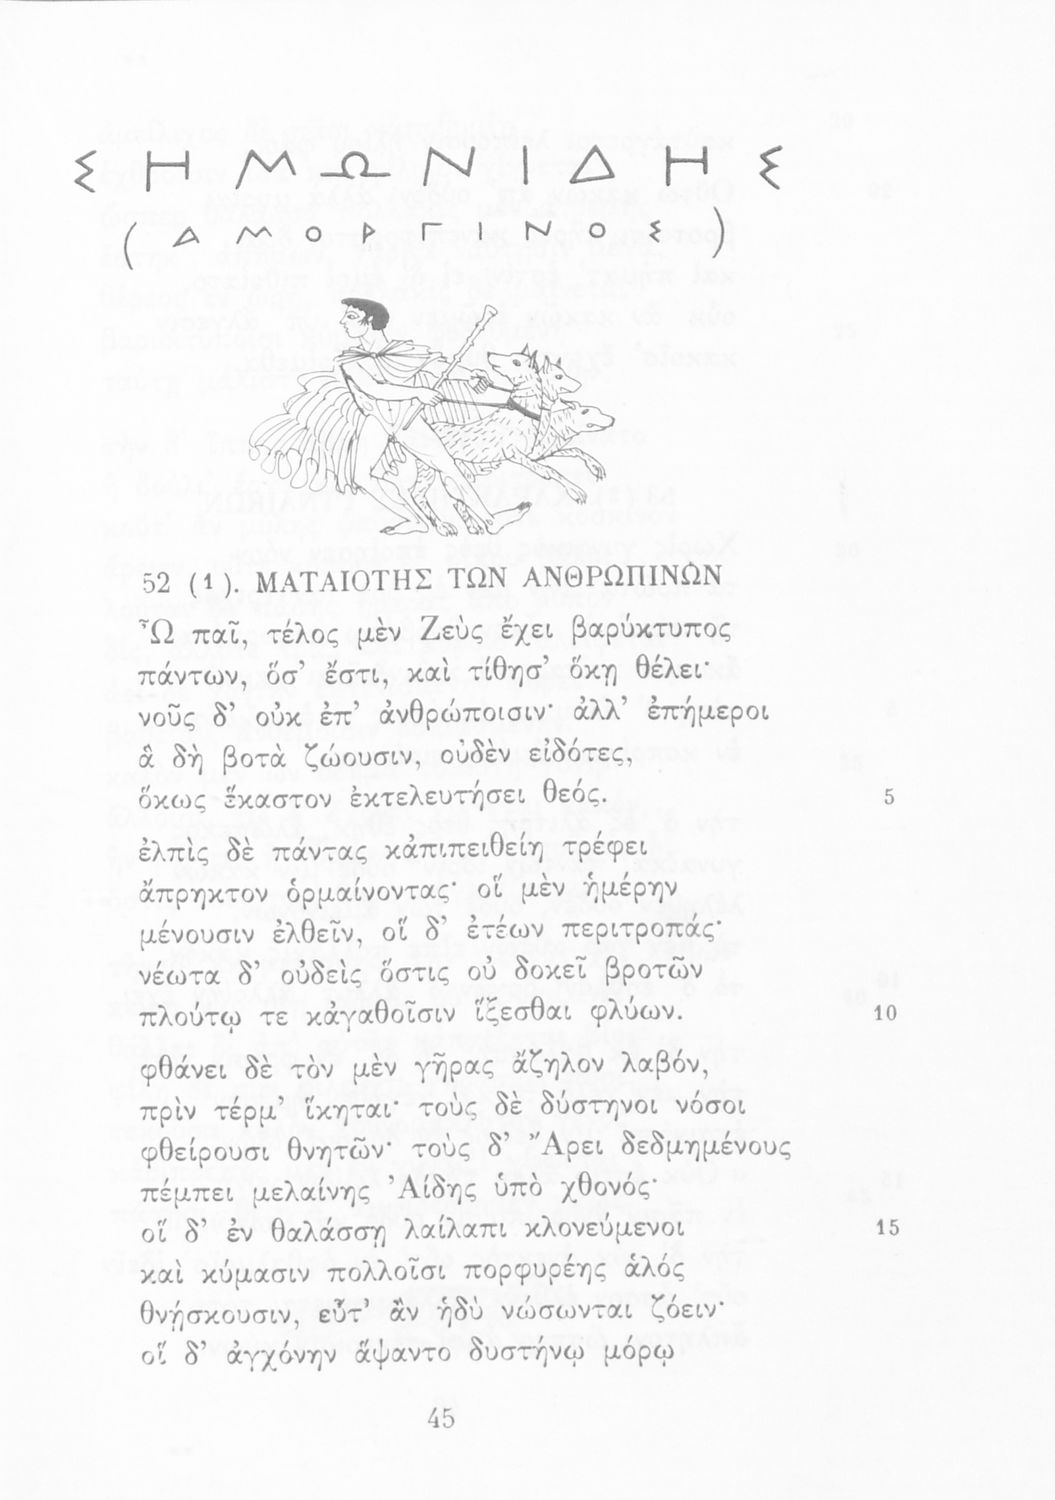 ΣΗΜΩΝΙΔΗΣ
(ΑΜΟΡΓΙΝΟΣ)
52 (1). ΜΑΤΑΙΟΤΗΣ ΤΩΝ ΑΝΘΡΩΠΙΝΩΝ
Ὦ παῖ, τέλος μὲν Ζεὺς ἔχει βαρύκτυπος
πάντων, ὅσ’ ἔστι, καὶ τίθησ’ ὅκῃ θέλει·
νοῦς δ’ οὐκ ἐπ’ ἀνθρώποισιν· ἀλλ’ ἐπήμεροι
ἃ δὴ βοτὰ ζώουσιν, οὐδὲν εἰδότες,
ὅκως ἕκαστον ἐκτελευτήσει θεός. 5
ἐλπὶς δὲ πάντας κἀπιπειθείη τρέφει
ἄπρηκτον ὁρμαίνοντας· οἳ μὲν ἡμέρην
μένουσιν ἐλθεῖν, οἳ δ’ ἐτέων περιτροπάς·
νέωτα δ’ οὐδεὶς ὅστις οὐ δοκεῖ βροτῶν
πλούτῳ τε κἀγαθοῖσιν ἵξεσθαι φλύων. 10
φθάνει δὲ τὸν μὲν γῆρας ἄζηλον λαβόν,
πρὶν τέρμ’ ἵκηται· τοὺς δὲ δύστηνοι νόσοι
φθείρουσι θνητῶν· τοὺς δ’ Ἄρει δεδμημένους
πέμπει μελαίνης Ἀίδης ὑπὸ χθονός·
οἳ δ’ ἐν θαλάσσῃ λαίλαπι κλονεύμενοι 15
καὶ κύμασιν πολλοῖσι πορφυρέης ἁλός
θνῄσκουσιν, εὖτ’ ἂν ἡδὺ νώσωνται ζόειν·
οἳ δ’ ἀγχόνην ἅψαντο δυστήνῳ μόρῳ
45